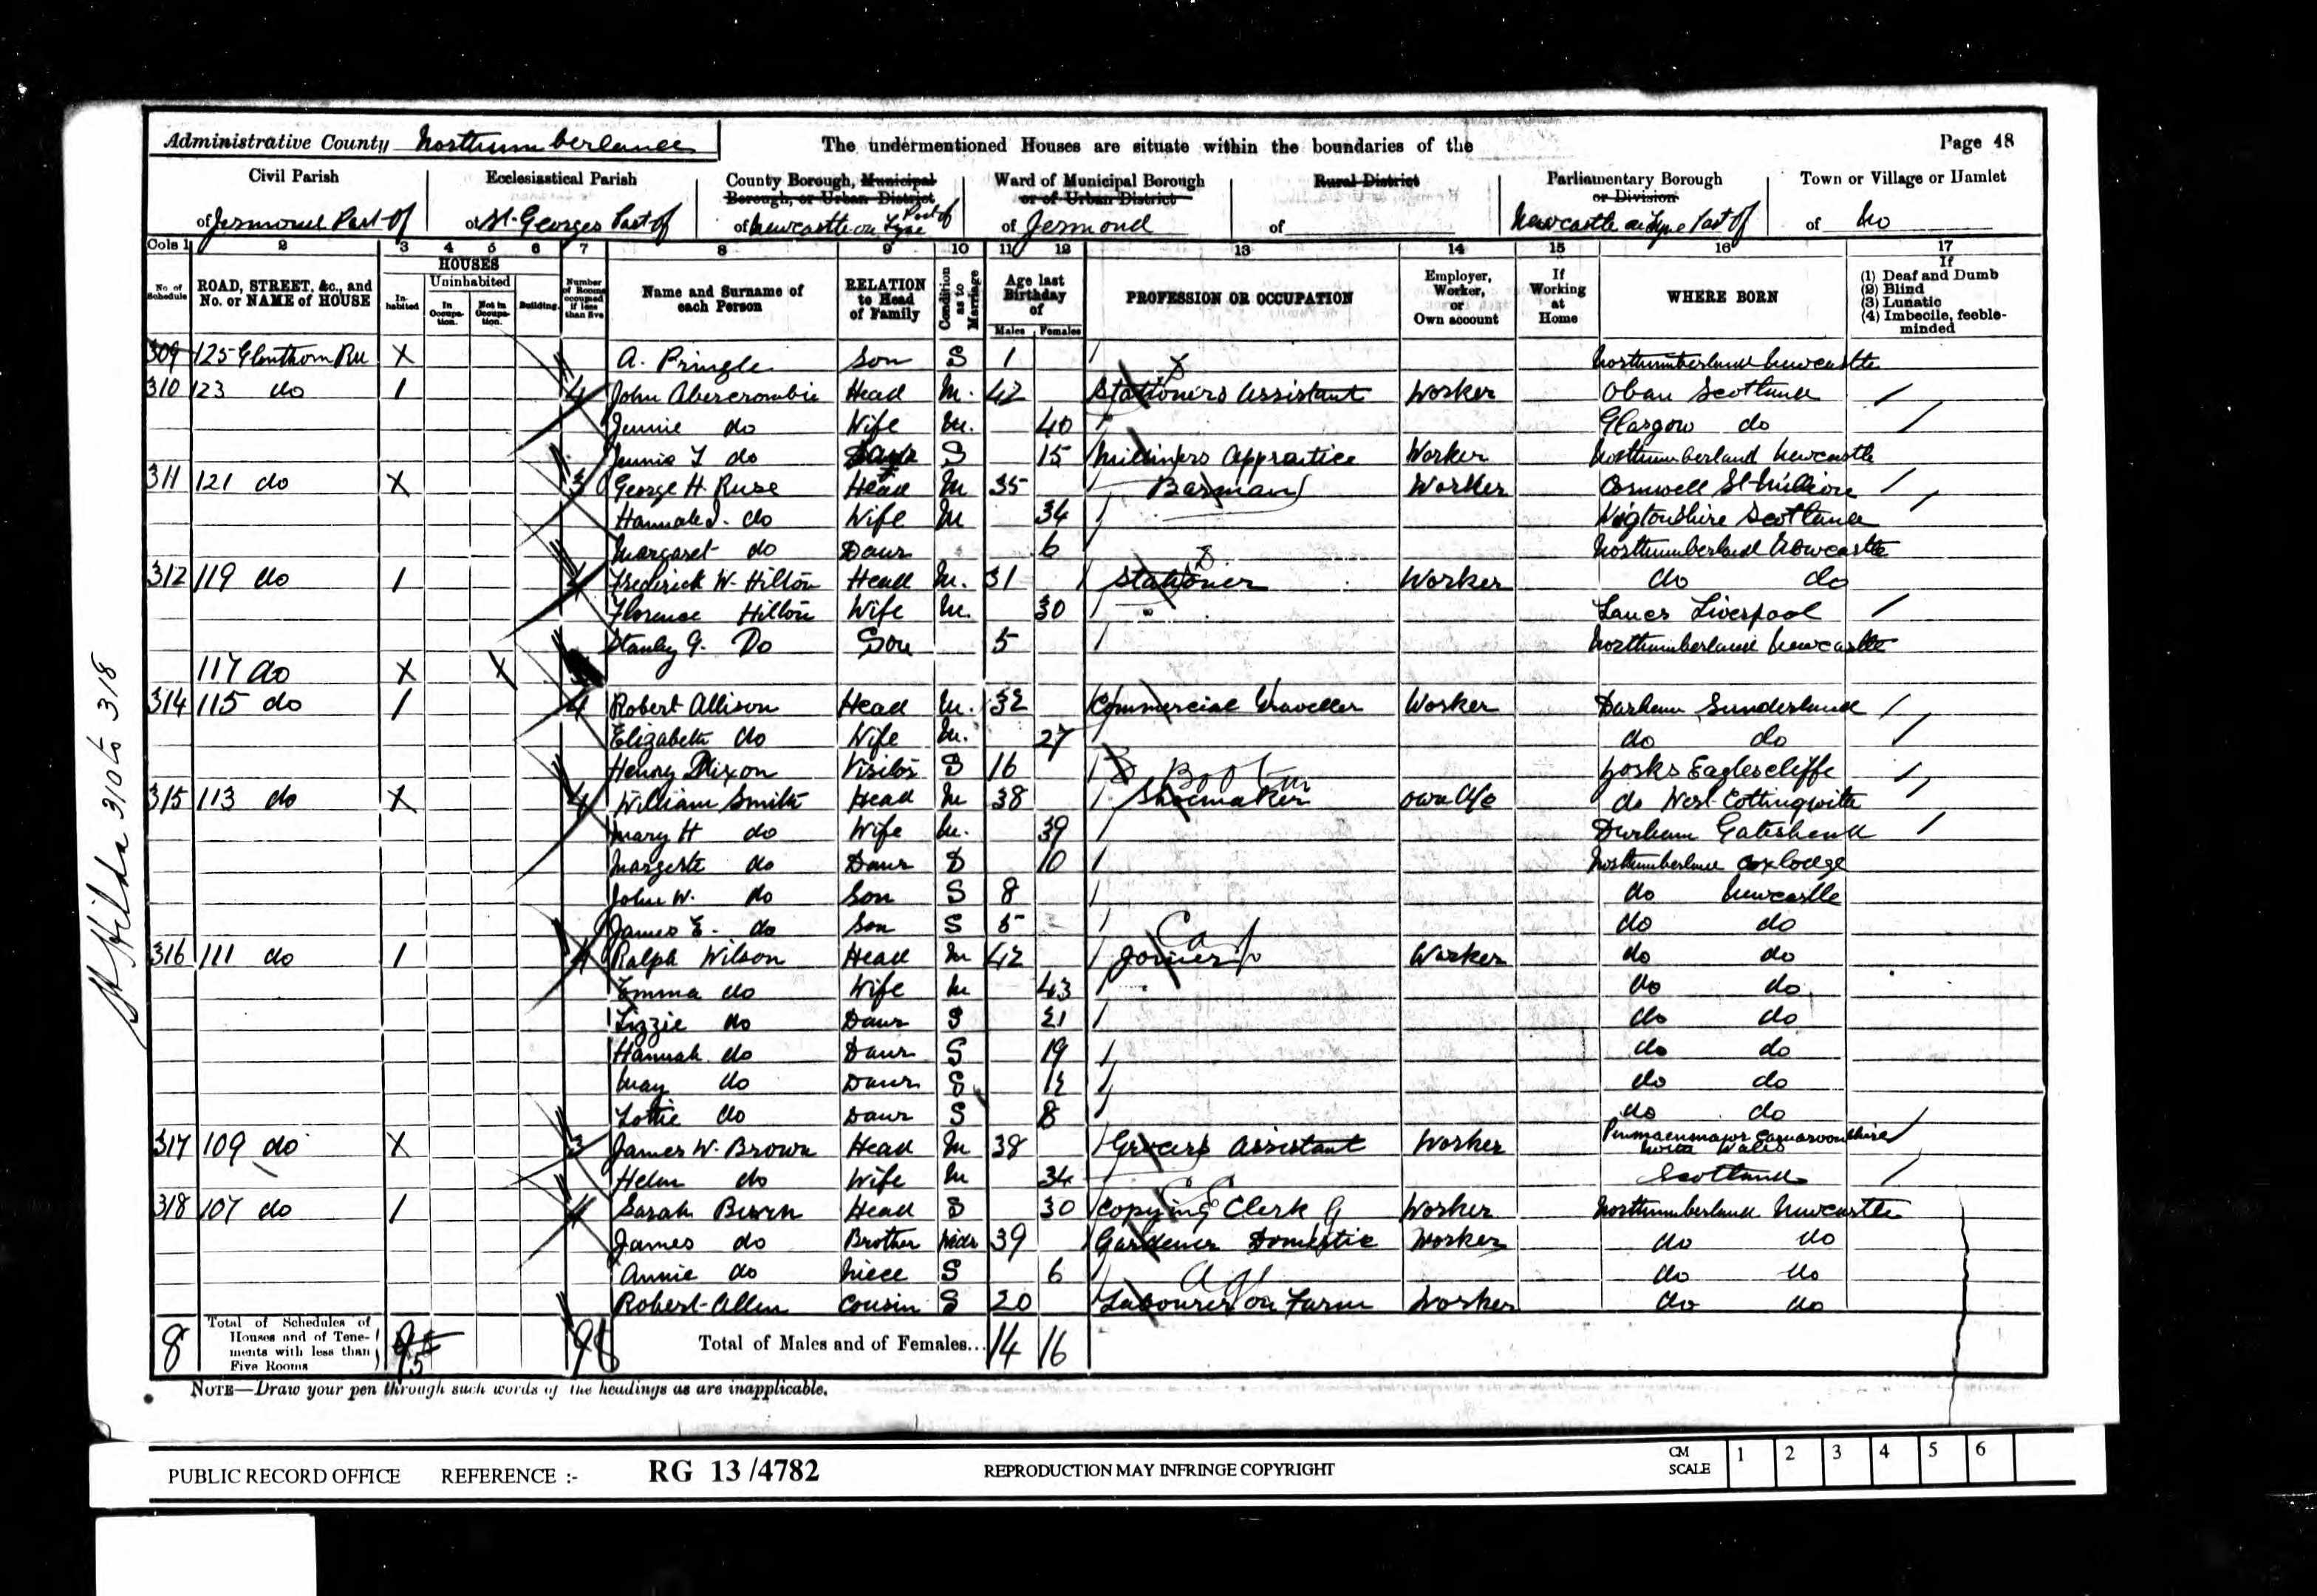 Administrative County Northumberland
The undermentioned Houses are situate within the boundaries of the
Page 48
Civil Parish
of Jesmond Part of
Ecclesiastical Parish
of St. Georges Part of
County Borough, Municipal
Borough, or Urban District
of Newcastle on Tyne Part of
Ward of Municipal Borough
or of Urban District
of Jesmond
Rural District
of
Parliamentary Borough
or Division
Newcastle on Tyne Part of
Town or Village or Hamlet
of No
Cols 1 2 3 4 5 6 7 8 9 10 11 12 13 14 15 16 17
No. of Schedule
ROAD, STREET, &c., and No. or NAME of HOUSE
HOUSES
In-habited
Uninhabited
In Occupa-tion.
Not in Occupa-tion.
Building.
Number of Rooms occupied if less than five
Name and Surname of each Person
RELATION to Head of Family
Condition as to Marriage
Age last Birthday of
Males Females
PROFESSION OR OCCUPATION
Employer, Worker, or Own account
If Working at Home
WHERE BORN
If
(1) Deaf and Dumb
(2) Blind
(3) Lunatic
(4) Imbecile, feeble-minded
309 125 Glenthorn Rd X A. Pringle Son S 1 Northumberland Newcastle
310 123 do 1 4 John Abercrombie Head M. 42 Stationers Assistant Worker Oban Scotland
Jennie do Wife M. 40 Glasgow do
Jennie do S 15 Milliners Apprentice Worker Northumberland Newcastle
311 121 do X 3 George H Ruse Head M 35 Barman Worker Cornwell St
Hannah J. do Wife M 34 Wigtonshire Scotland
Margaret do Daur 6 Northumberland Newcastle
312 119 do 1 4 Frederick W. Hilton Head M. 31 Stationer Worker do do
Florence Hilton Wife M. 30 Lancs Liverpool
Stanley G. Do Son 5 Northumberland Newcastle
117 do X X
314 115 do 1 4 Robert Allison Head M. 32 Commercial Traveller Worker Durham Sunderland
Elizabeth do Wife M. 27 do do
Henry Dixon Visitor S 16 Yorks Eaglescliffe
Boot m
315 113 do X 4 William Smith Head M 38 Shoemaker own a/c do West Cottingwith
Mary H do Wife M. 39 Durham Gateshead
do Daur 10 Northumberland Coxlodge
John W. do Son S 8 do Newcastle
James E. do Son S 5 do do
Carp
316 111 do 1 4 Ralph Wilson Head M 42 Joiner Worker do do
Emma do Wife M 43 do do
Lizzie do Daur S 21 do do
Hannah do Daur S 19 do do
May do Daur S 12 do do
Lottie do Daur S 8 do do
317 109 do X 3 James W. Brown Head M 38 Grocers Assistant Worker Penmaenmawr Carnarvonshire North Wales
Helen do Wife M 34 Scotland
318 107 do 1 4 Sarah Head S 30 Copying Clerk Worker Northumberland Newcastle
James do Brother Widr 39 Gardener Domestic Worker do do
Annie do Niece S 6 do do
Ag
Robert Allen Cousin S 20 Labourer on Farm Worker do do
8
Total of Schedules of Houses and of Tene-ments with less than Five Rooms
Total of Males and of Females... 14 16
NOTE—Draw your pen through such words of the headings as are inapplicable.
St Hilda 310 to 318
PUBLIC RECORD OFFICE REFERENCE :- RG 13/4782 REPRODUCTION MAY INFRINGE COPYRIGHT
CM SCALE 1 2 3 4 5 6